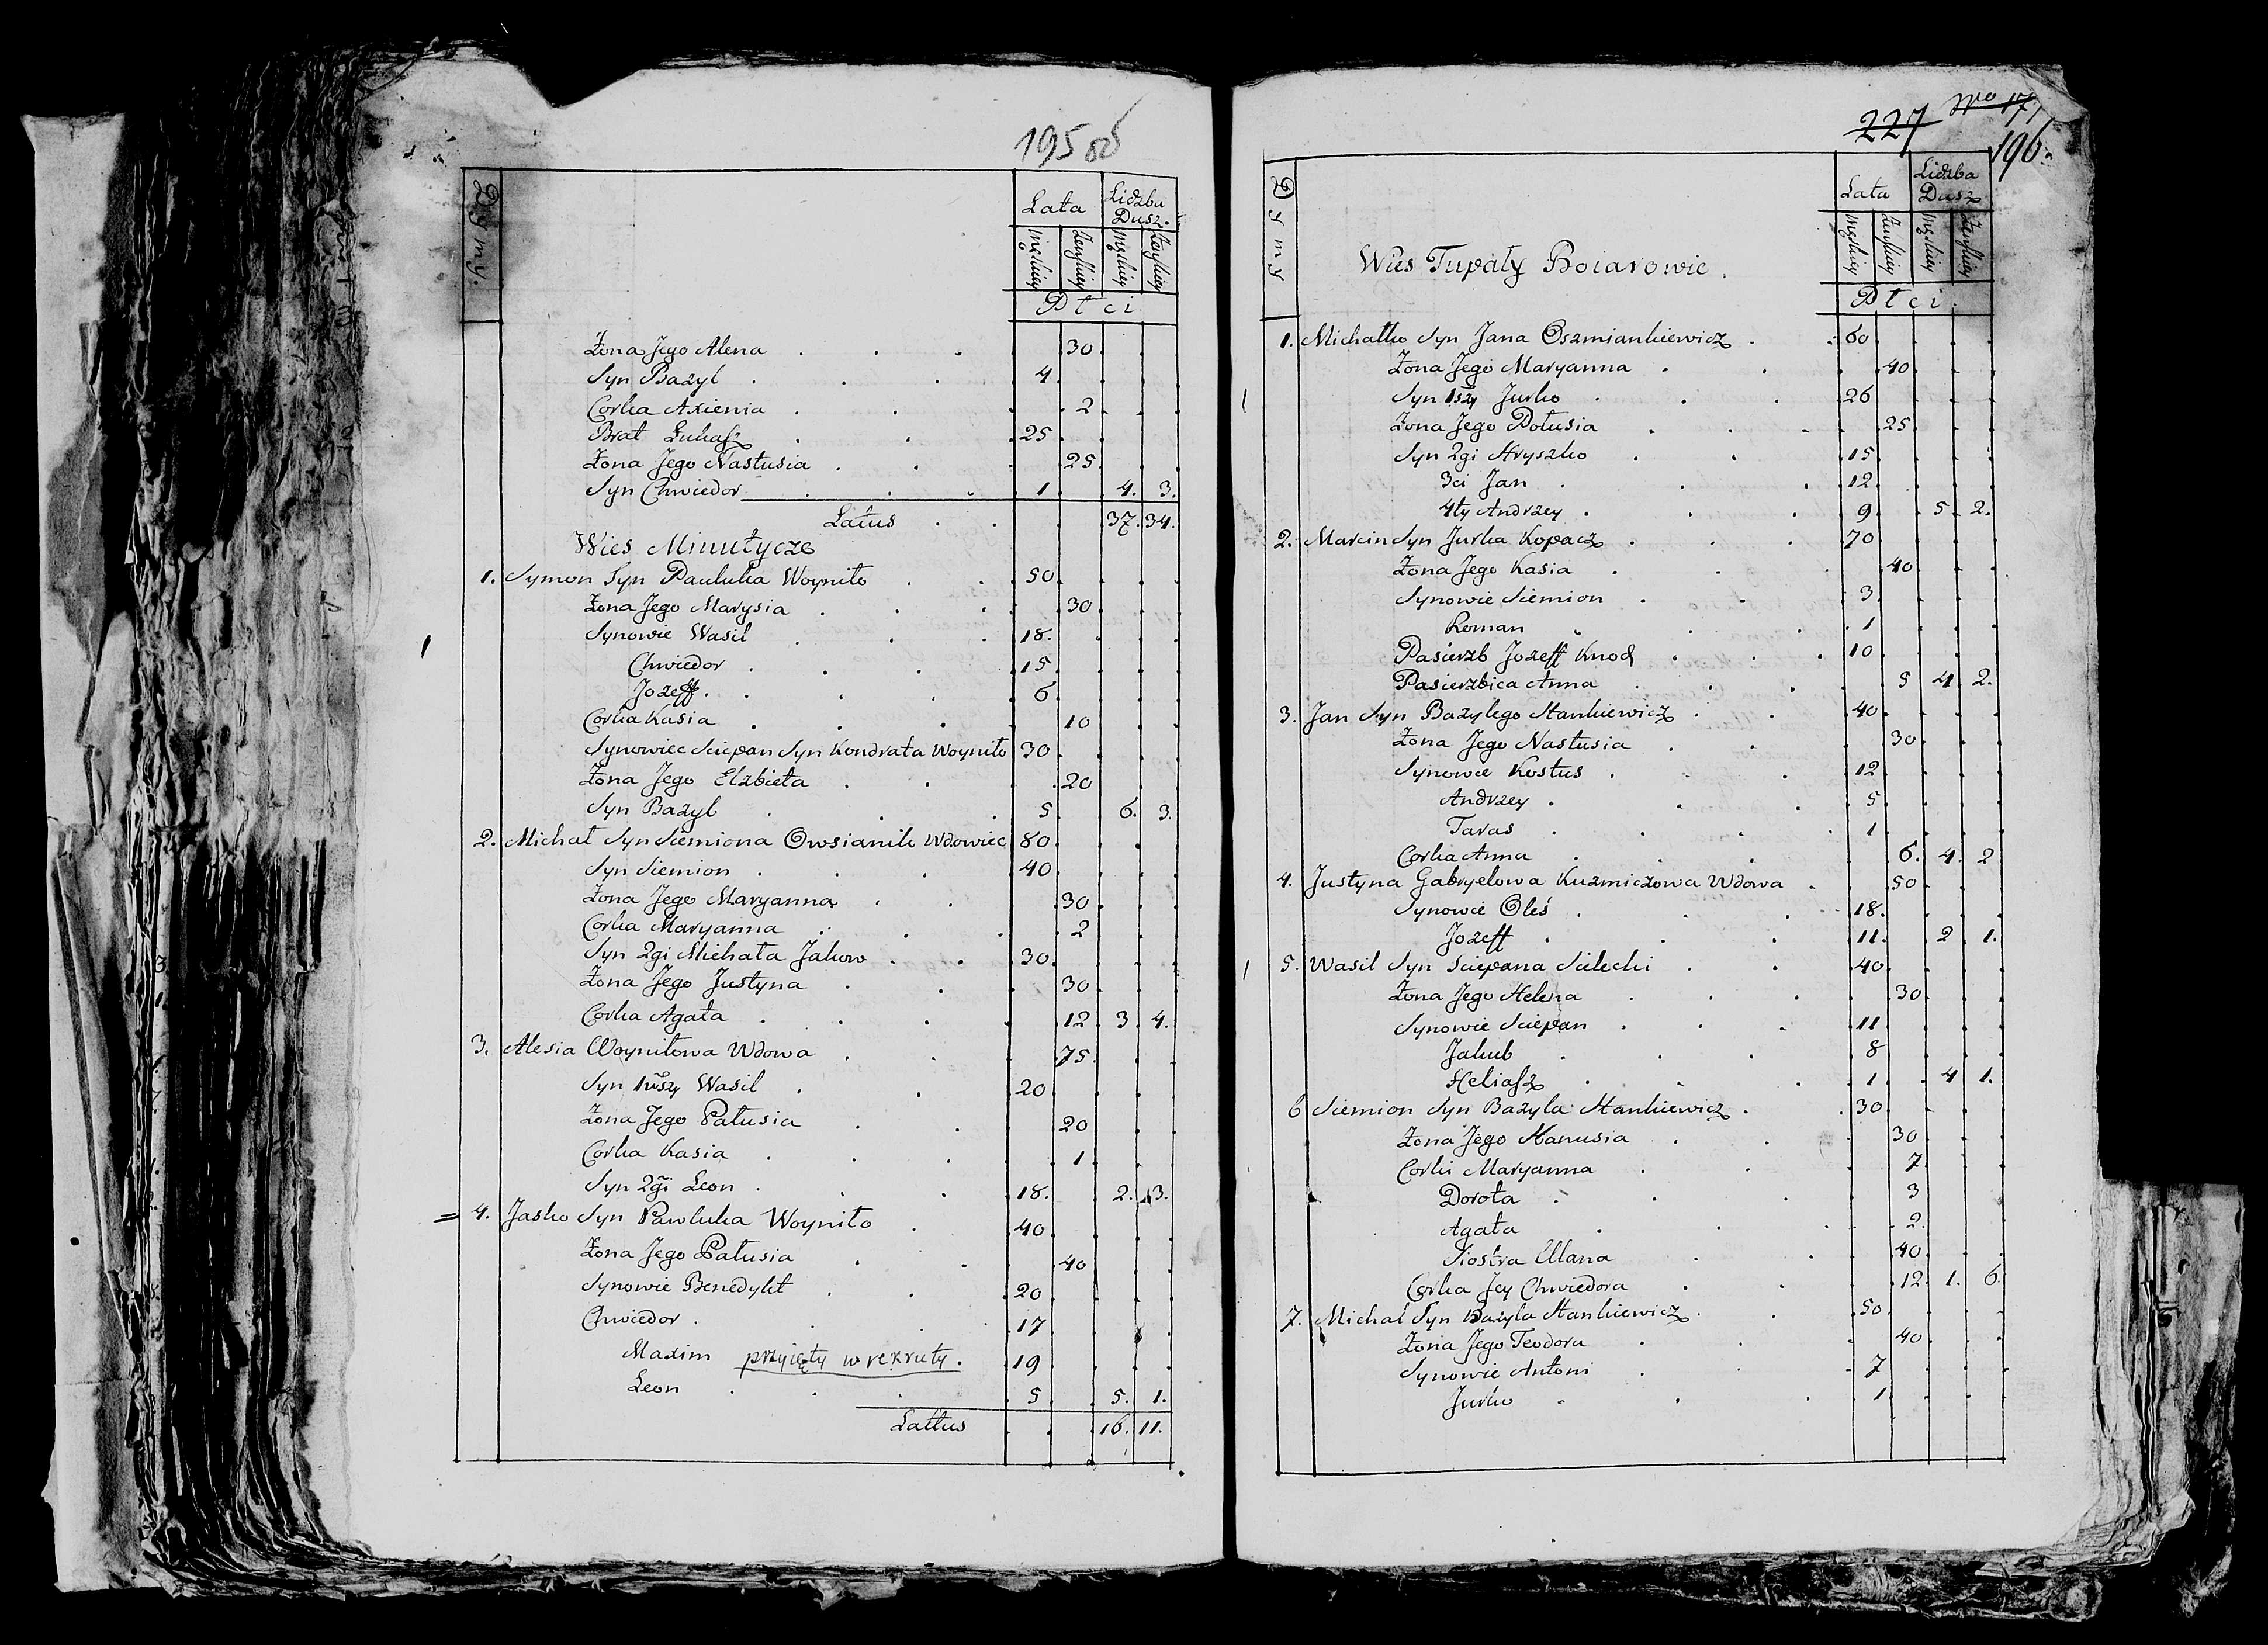 195 об
Dymy.
Lata
Liczba Dusz.
Męskiey
Żeńskiey
Męskiey
Żeńskiey
Płci
Żona Jego Alena 30
Syn Bazyl 4
Corka Axienia 2
Brat Łukasz 25
Żona Jego Nastusia 25
Syn Chwiedor 1 4. 3.
Latus 37. 34.
Wies Minutycze
1. Symon Syn Pauluka Woyniło 50
Żona Jego Marysia 30
Synowie Wasil 18.
Chwiedor 15
Jozeff 6
Corka Kasia 10
Synowiec Sciepan Syn Kondrata Woyniło 30
Żona Jego Elzbieta 20
Syn Bazyl 5 6. 3.
2. Michał Syn Siemiona Owsianik Wdowiec 80
Syn Siemion 40
Żona Jego Maryanna 30
Corka Maryanna 2
Syn 2gi Michała Jakow 30
Żona Jego Justyna 30
Corka Agata 12 3. 4.
3. Alesia Woyniłowa Wdowa 75
Syn 1wszy Wasil 20
Żona Jego Patusia 20
Corka Kasia 1
Syn 2gi Leon 18. 2. 3.
4. Jasko Syn Pawluka Woyniło 40
Żona Jego Patusia 40
Synowie Benedykt 20
Chwiedor 17
Maxim przyięty w rekruty. 19
Leon 5 5. 1.
Lattus 16. 11.
227 196.
Dymy
Lata
Liczba Dusz
Męskiey
Żeńskiey
Męskiey
Żeńskiey
Płci
Wies Tupały Boiarowie.
1. Michałko Syn Jana Oszmiankiewicz 60
Żona Jego Maryanna 40
Syn 1szy Jurko 26
Żona Jego Połusia 25
Syn 2gi Hryszko 15
3ci Jan 12
4ty Andrzey 9 5. 2.
2. Marcin Syn Jurka Kopacz 70
Żona Jego Kasia 40
Synowie Siemion 3
Roman 1
Pasierzb Jozeff Knoc 10
Pasierzbica Anna 5 4. 2.
3. Jan Syn Bazylego Stankiewicz 40
Żona Jego Nastusia 30
Synowie Kostus 12
Andrzey 5
Taras 1
Corka Anna 6. 4. 2
4. Justyna Gabryelowa Kuzmiczowa Wdowa 50
Synowie Oleś 18.
Jozeff 11. 2 1.
5. Wasil Syn Sciepana Sielecki 40
Żona Jego Helena 30
Synowie Sciepan 11
Jakub 8
Heliasz 1 4 1.
6 Siemion Syn Bazyla Stankiewicz 30
Żona Jego Hanusia 30
Corki Maryanna 7
Dorota 3
Agata 2.
Siostra Ullana 40
Corka Jey Chwiedora 12. 1. 6.
7. Michał Syn Bazyla Stankiewicz 50
Żona Jego Teodora 40
Synowie Antoni 7
Jurko 1